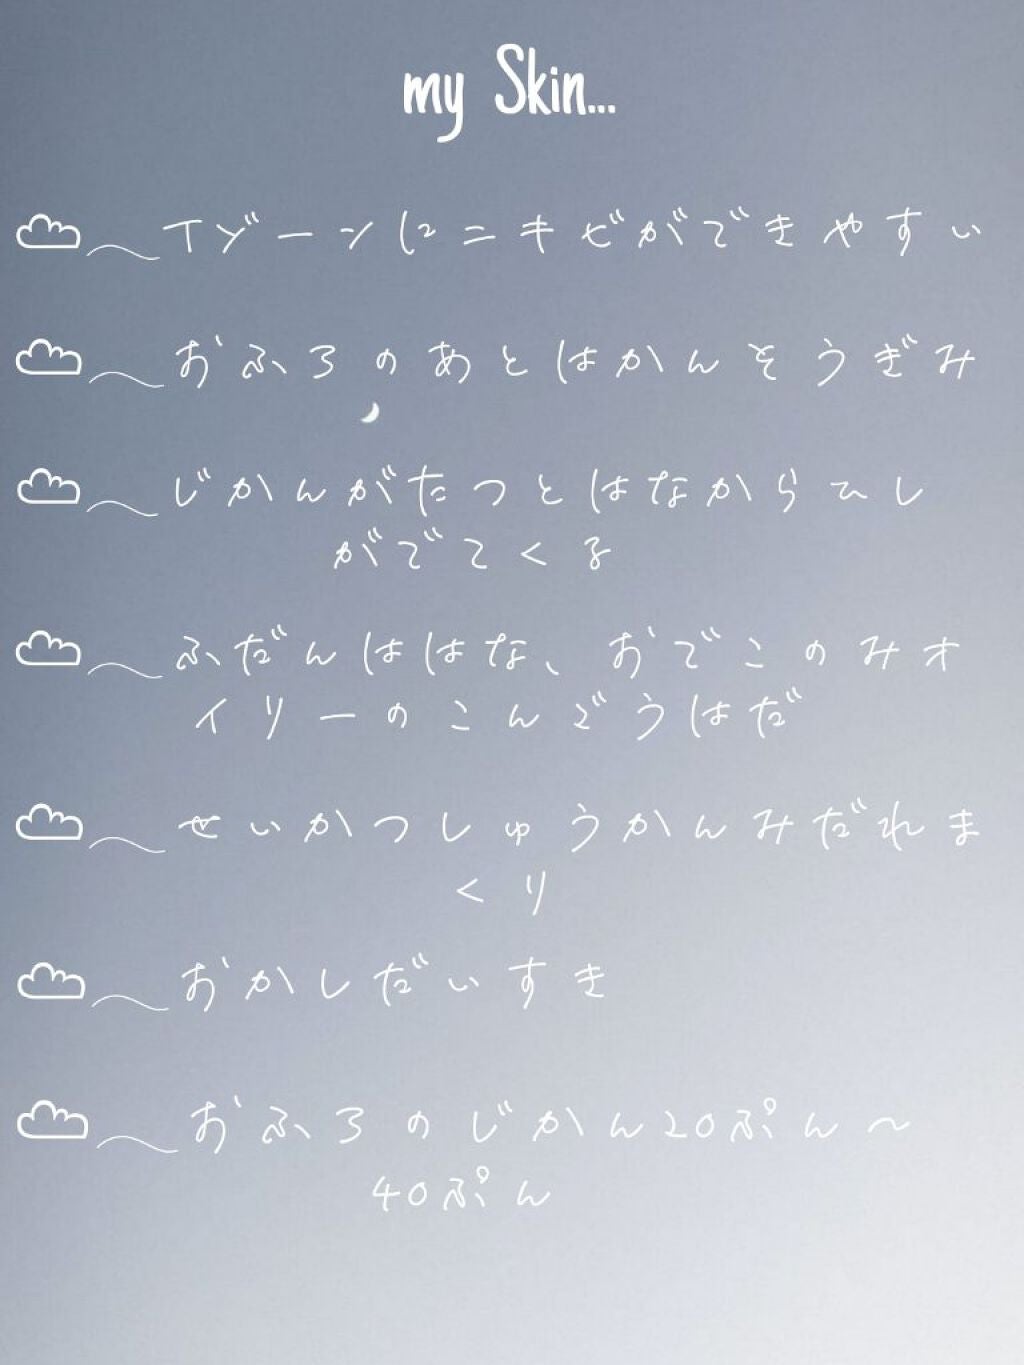 my Skin...
Tゾーンにニキビができやすい
おふろのあとはかんそうぎみ
じかんがたつとはなからひし
がでてくる
ふだんははな、おでこのみオ
イリーのこんごうはだ
せいかつしゅうかんみだれま
くり
おかしだいすき
おふろのじかん20ぷん〜
40ぷん